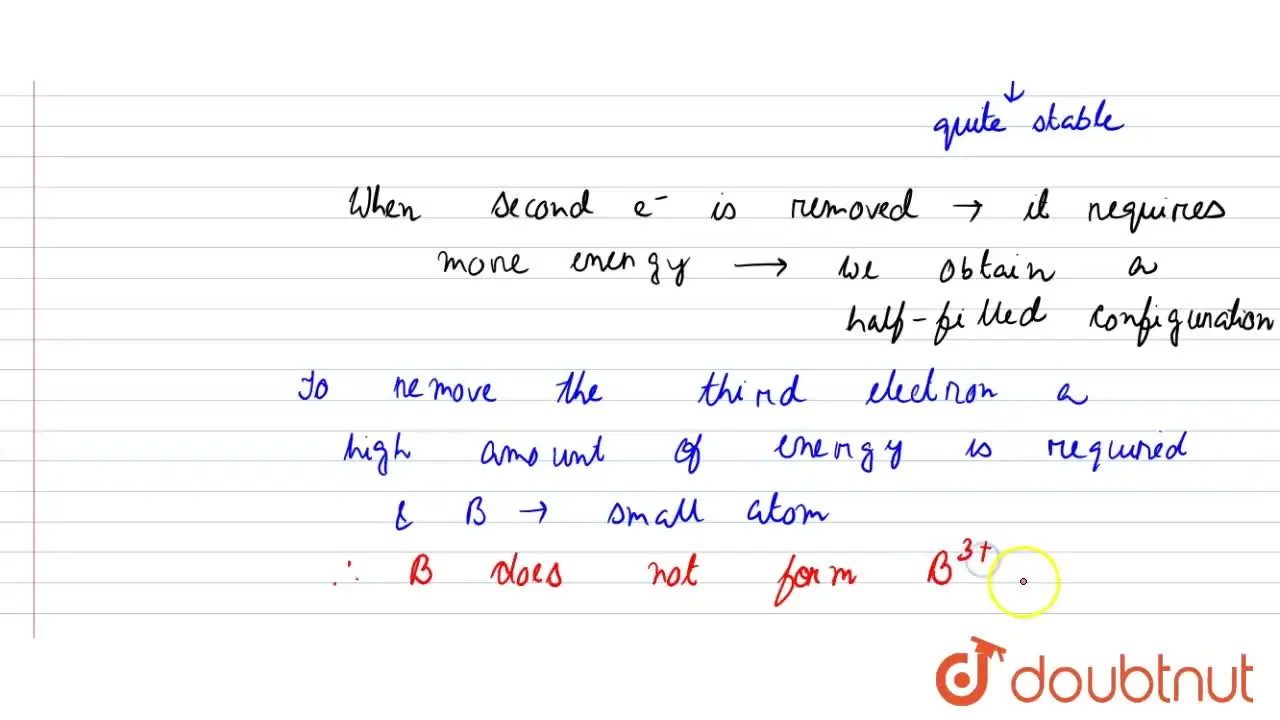 ↓
quite stable
When second e⁻ is removed → it requires
more energy → we obtain a
half-filled configuration
To remove the third electron a
high amount of energy is required
& B → small atom
∴ B does not form B³⁺
doubtnut